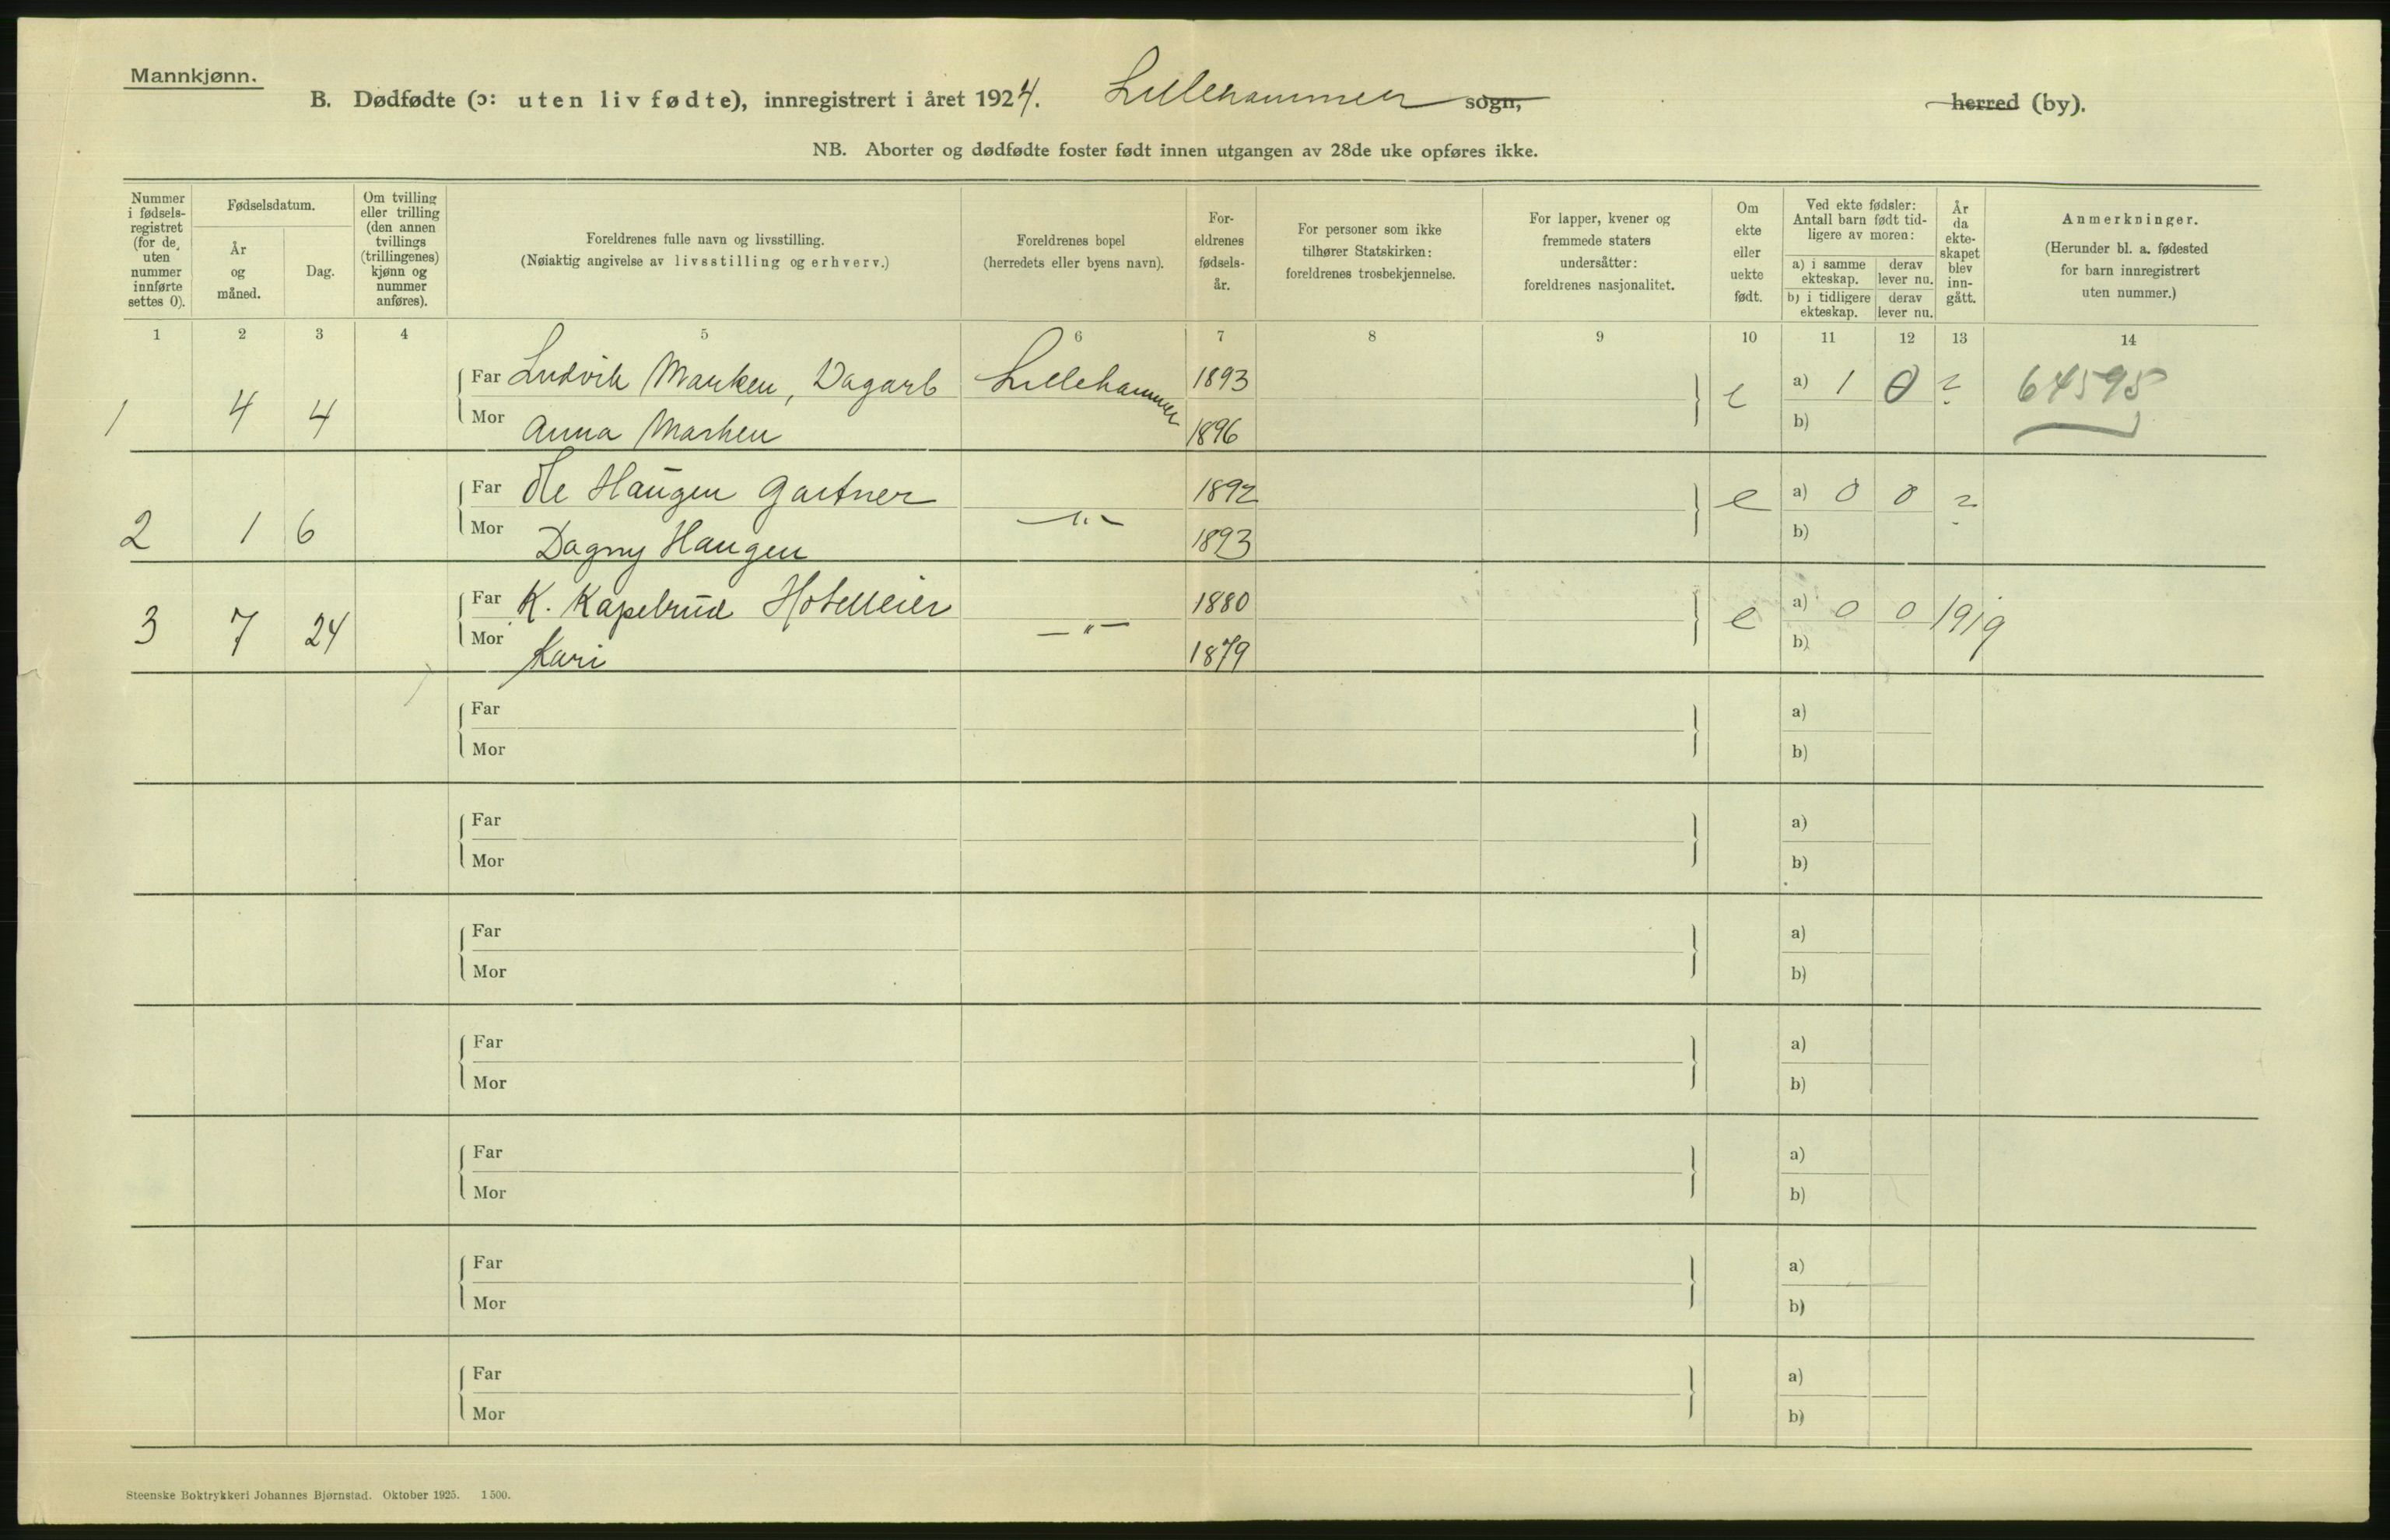 Mannkjønn.
B. Dødfødte (ɔ: uten liv fødte), innregistrert i året 1924. Lillehammer sogn, herred (by).
NB. Aborter og dødfødte foster født innen utgangen av 28de uke opføres ikke.
Nummer i fødsels-registret (for de uten nummer innførte settes 0).
Fødselsdatum.
År og måned.
Dag.
Om tvilling eller trilling (den annen tvillings (trillingenes) kjønn og nummer anføres).
Foreldrenes fulle navn og livsstilling.
(Nøiaktig angivelse av livsstilling og erhverv.)
Foreldrenes bopel
(herredets eller byens navn).
For-eldrenes fødsels-år.
For personer som ikke tilhører Statskirken: foreldrenes trosbekjennelse.
For lapper, kvener og fremmede staters undersåtter: foreldrenes nasjonalitet.
Om ekte eller uekte født.
Ved ekte fødsler: Antall barn født tid-ligere av moren:
a) i samme ekteskap. derav lever nu.
b) i tidligere ekteskap. derav lever nu.
År da ekte-skapet blev inn-gått.
Anmerkninger.
(Herunder bl. a. fødested for barn innregistrert uten nummer.)
1 2 3 4 5 6 7 8 9 10 11 12 13 14
1 4 4 Far Ludvik Marken, Dagarb Lillehammer 1893 e a) 1 0 ? 64595
Mor Anna Marken 1896 b)
2 1 6 Far Ole Haugen Gartner —"— 1892 e a) 0 0 ?
Mor Dagny Haugen 1893 b)
3 7 24 Far K. Kapelrud Hotelleier —"— 1880 e a) 0 0 1919
Mor Kari 1879 b)
Far a)
Mor b)
Far a)
Mor b)
Far a)
Mor b)
Far a)
Mor b)
Far a)
Mor b)
Far a)
Mor b)
Far a)
Mor b)
Steenske Boktrykkeri Johannes Bjørnstad. Oktober 1925. 1500.